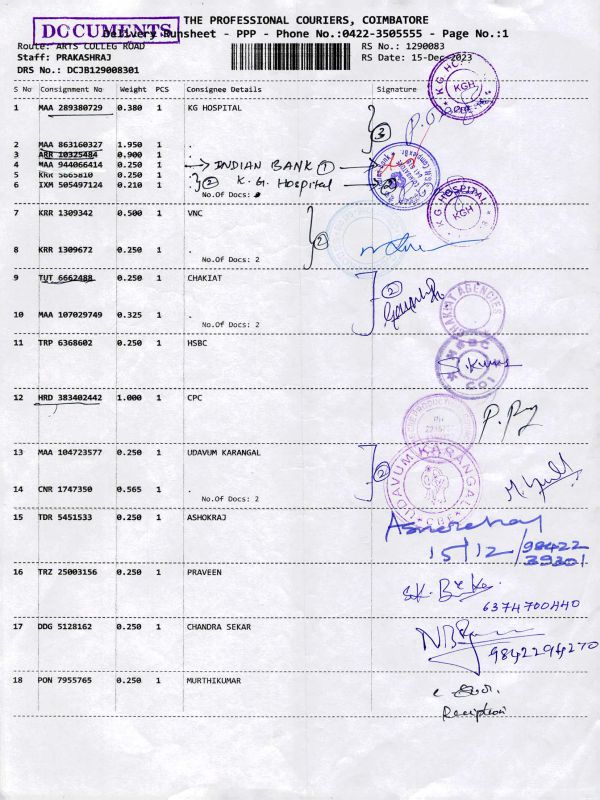 THE PROFESSIONAL COURIERS, COIMBATORE
DOCUMENTS
Delivery Runsheet - PPP - Phone No.:0422-3505555 - Page No.:1
Route: ARTS COLLEG ROAD RS No.: 1290083
Staff: PRAKASHRAJ RS Date: 15-Dec-2023
DRS No.: DCJB129008301
S No Consignment No Weight PCS Consignee Details Signature
1 MAA 289380729 0.380 1 KG HOSPITAL
KGH
3
2 MAA 863160327 1.950 1 .
3 ARR 10325484 0.900 1 .
4 MAA 944066414 0.250 1 . INDIAN BANK 1
5 KRR 5665810 0.250 1 . 2 K.G. Hospital
6 IXM 505497124 0.210 1 .
No.Of Docs:
K G HOSPITAL
KGH
7 KRR 1309342 0.500 1 VNC
2
8 KRR 1309672 0.250 1 .
No.Of Docs: 2
9 TUT 6662488 0.250 1 CHAKIAT
2
CHAKIAT AGENCIES
10 MAA 107029749 0.325 1 .
No.Of Docs: 2
11 TRP 6368602 0.250 1 HSBC
HSBC
COI
S. Kumar
12 HRD 383402442 1.000 1 CPC
13 MAA 104723577 0.250 1 UDAVUM KARANGAL
2
UDAVUM KARANGAL
CBE
14 CNR 1747350 0.565 1 .
No.Of Docs: 2
15 TDR 5451533 0.250 1 ASHOKRAJ
15/12/98422
39301
16 TRZ 25003156 0.250 1 PRAVEEN
6374700440
17 DDG 5128162 0.250 1 CHANDRA SEKAR
9842294270
18 PON 7955765 0.250 1 MURTHIKUMAR
Reception